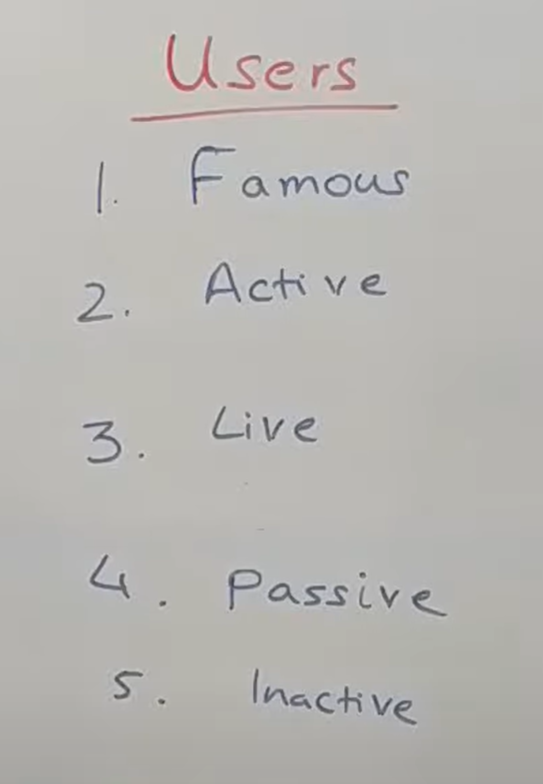 Users
1. Famous
2. Active
3. Live
4. Passive
5. Inactive